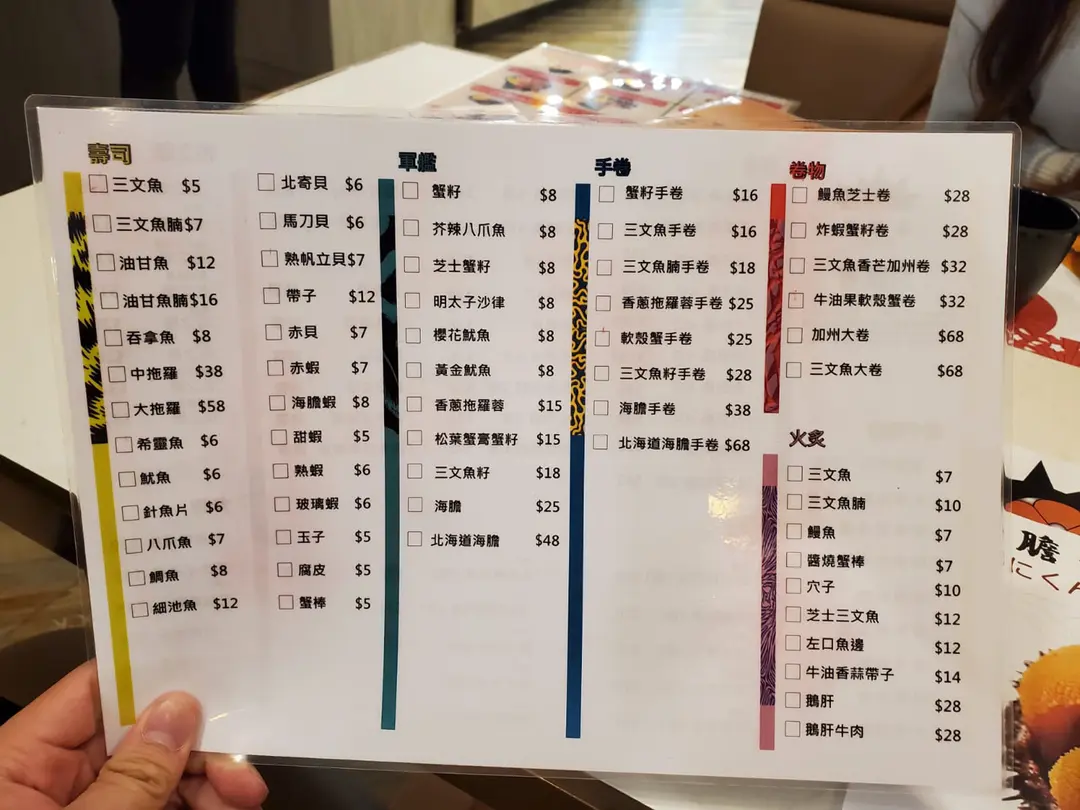 壽司
三文魚 $5
三文魚腩 $7
油甘魚 $12
油甘魚腩 $16
吞拿魚 $8
中拖羅 $38
大拖羅 $58
希靈魚 $6
魷魚 $6
針魚片 $6
八爪魚 $7
鯛魚 $8
細池魚 $12
北寄貝 $6
馬刀貝 $6
熟帆立貝 $7
帶子 $12
赤貝 $7
赤蝦 $7
海膽蝦 $8
甜蝦 $5
熟蝦 $6
玻璃蝦 $6
玉子 $5
腐皮 $5
蟹棒 $5
軍艦
蟹籽 $8
芥辣八爪魚 $8
芝士蟹籽 $8
明太子沙律 $8
櫻花魷魚 $8
黃金魷魚 $8
香蔥拖羅蓉 $15
松葉蟹膏蟹籽 $15
三文魚籽 $18
海膽 $25
北海道海膽 $48
手卷
蟹籽手卷 $16
三文魚手卷 $16
三文魚腩手卷 $18
香蔥拖羅蓉手卷 $25
軟殼蟹手卷 $25
三文魚籽手卷 $28
海膽手卷 $38
北海道海膽手卷 $68
卷物
鰻魚芝士卷 $28
炸蝦蟹籽卷 $28
三文魚香芒加州卷 $32
牛油果軟殼蟹卷 $32
加州大卷 $68
三文魚大卷 $68
火炙
三文魚 $7
三文魚腩 $10
鰻魚 $7
醬燒蟹棒 $7
穴子 $10
芝士三文魚 $12
左口魚邊 $12
牛油香蒜帶子 $14
鵝肝 $28
鵝肝牛肉 $28
膽
にく